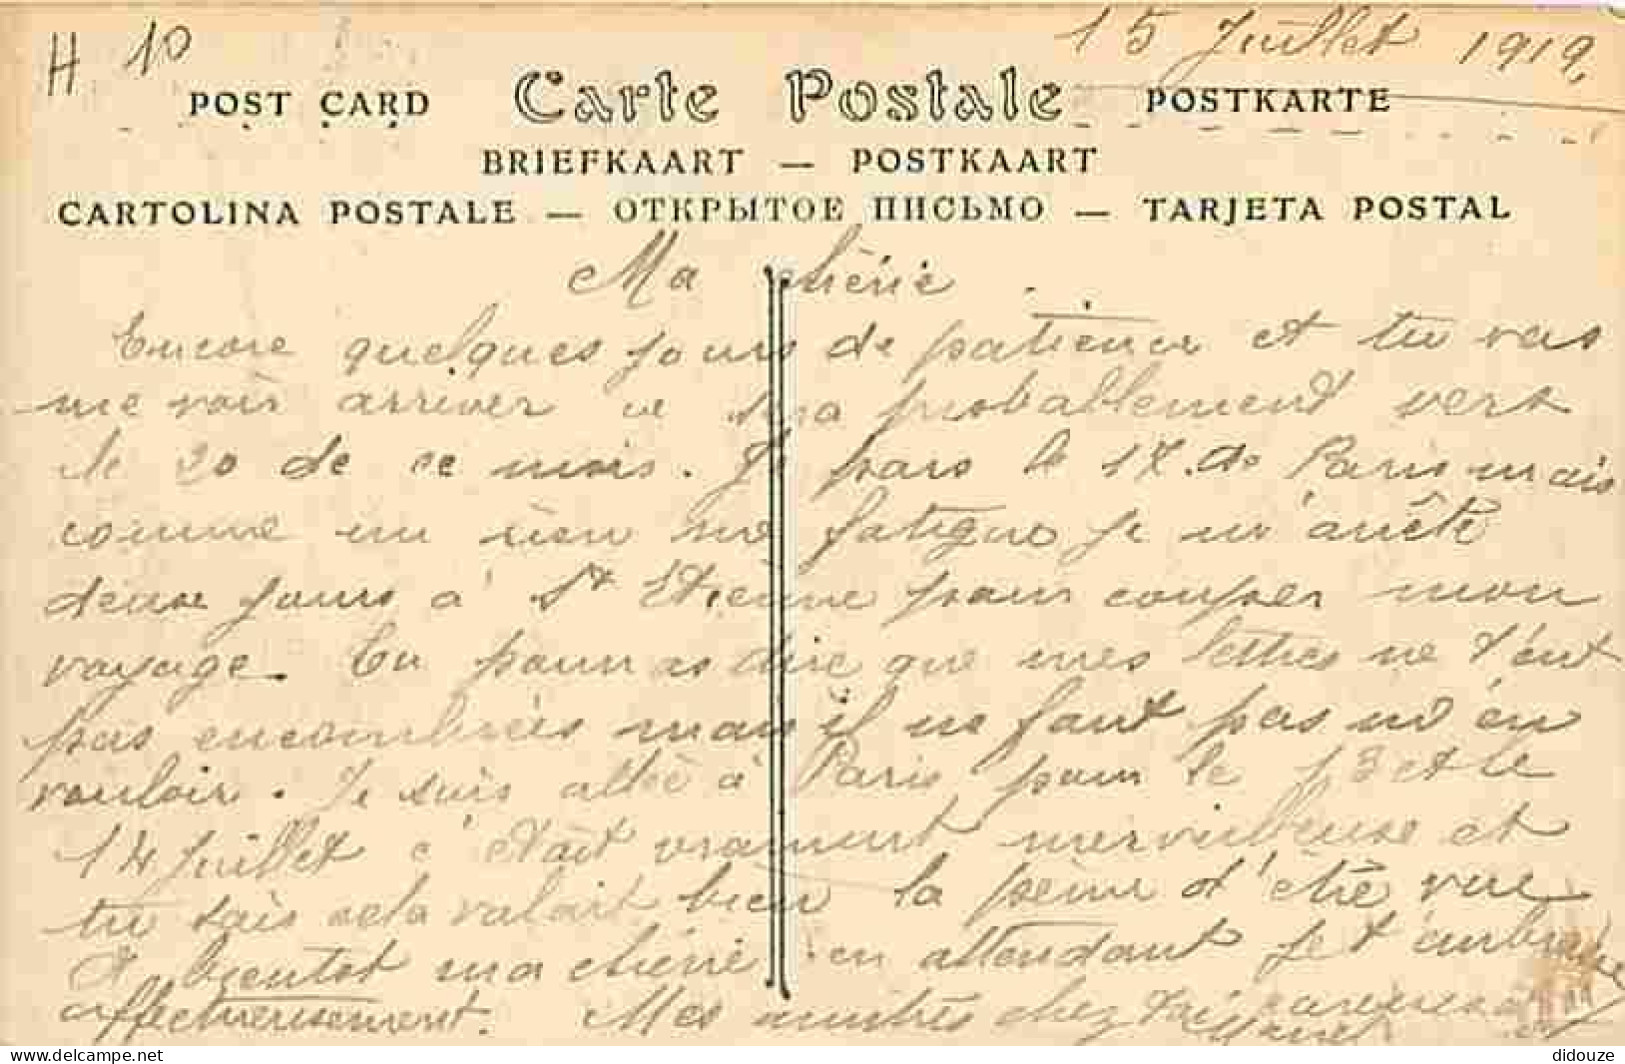 H 10
15 Juillet 1919,
POST CARD Carte Postale POSTKARTE
BRIEFKAART — POSTKAART
CARTOLINA POSTALE — ОТКРЫТОЕ ПИСЬМО — TARJETA POSTAL
Ma chérie
Encore quelques jours de patience et tu vas
me voir arriver ce sera probablement vers
le 20 de ce mois. Je pars le 17 de Paris mais
comme un rien me fatigue je m'arrête
deux jours à St Etienne pour couper mon
voyage. Tu pourras dire que mes lettres ne t'ont
pas encombrées mais il ne faut pas m'en
vouloir. Je suis allée à Paris pour le 13 et le
14 Juillet c'était vraiment merveilleuse et
tu sais cela valait bien la peine d'être vue
A bientot ma chérie en attendant je t'embrasse
affectueusement. Mes amitiés chez toi
didouze